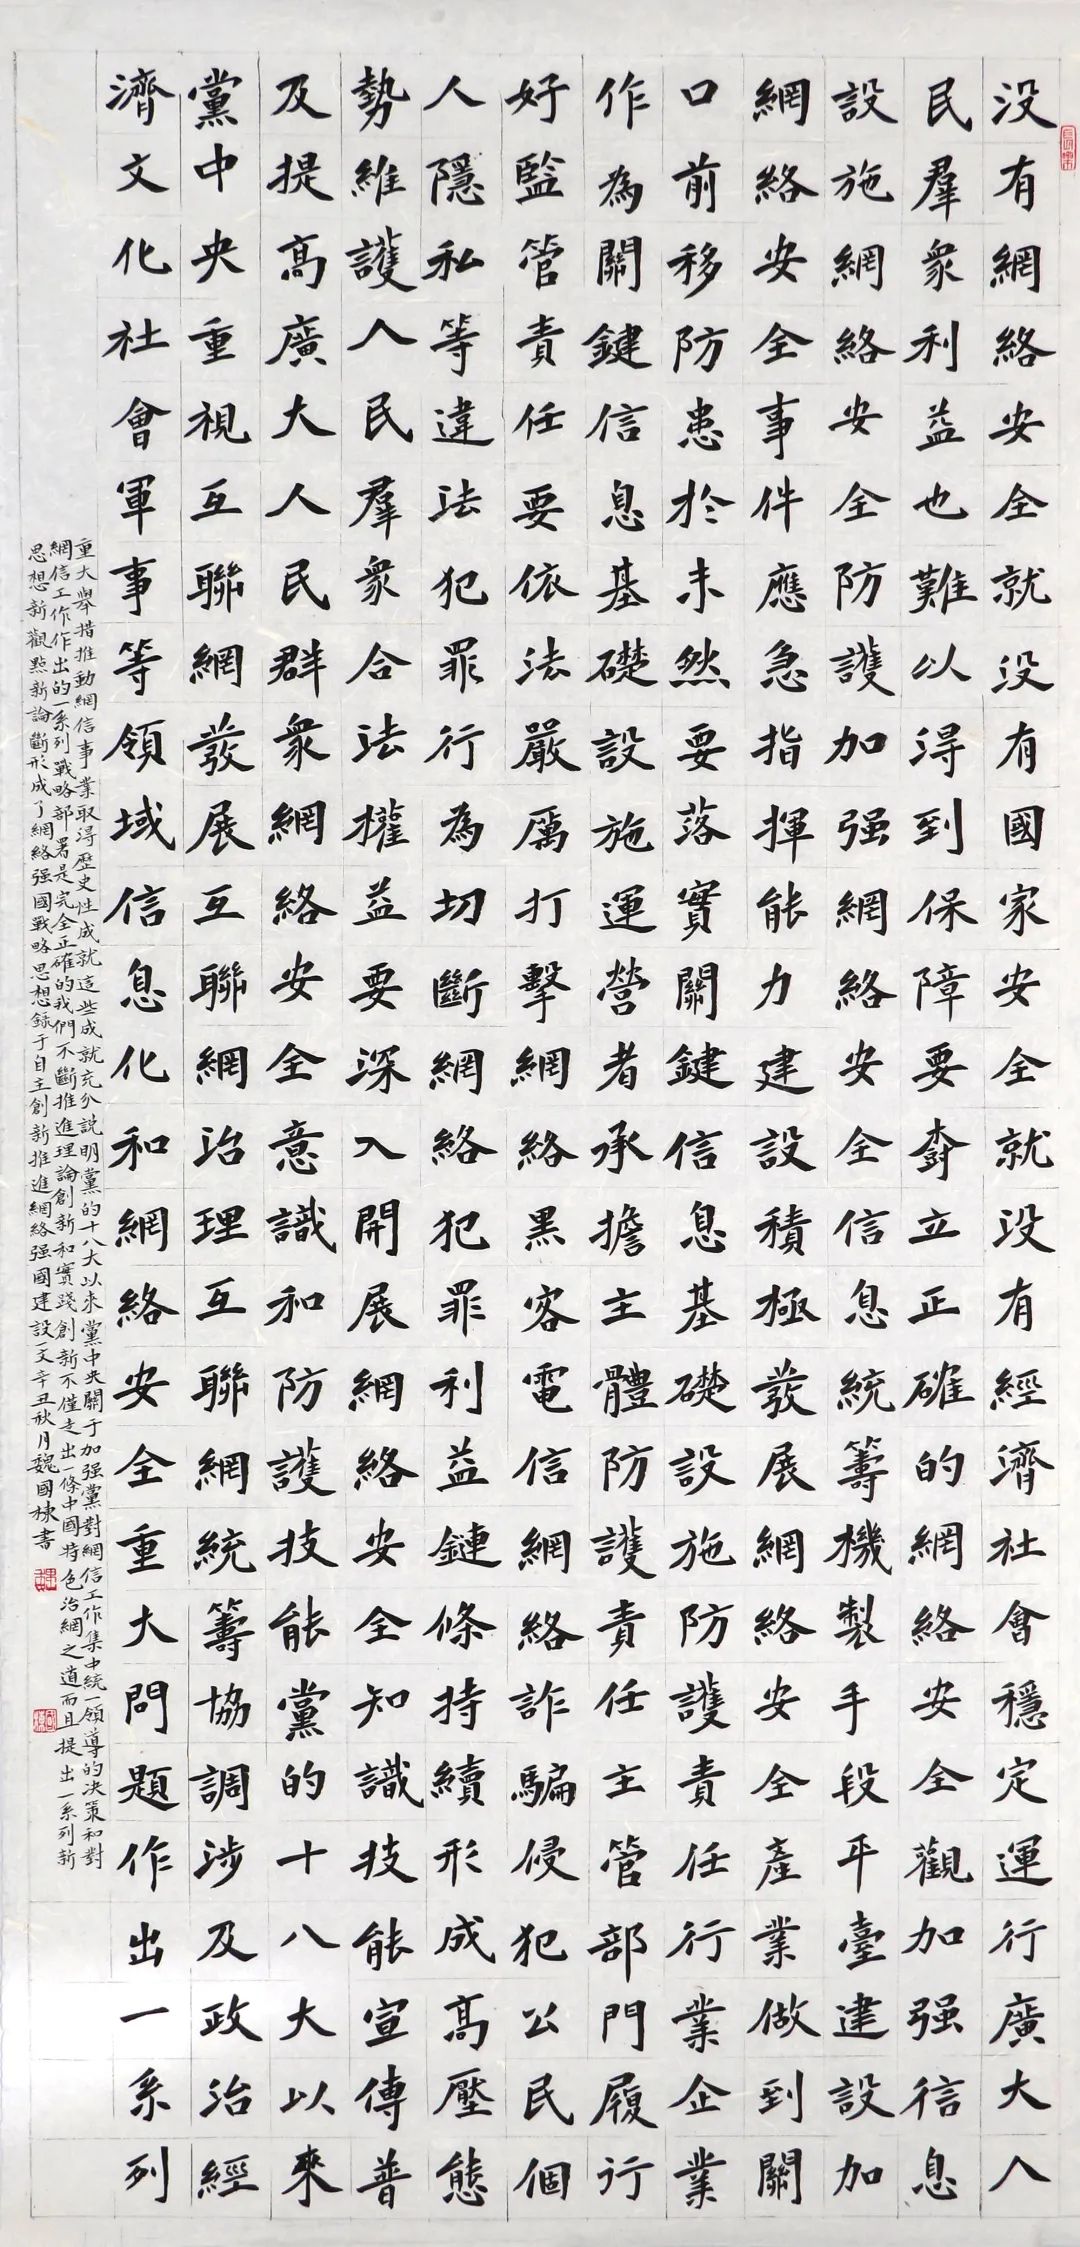 没有網絡安全就没有國家安全就没有經濟社會穩定運行廣大人
民羣衆利益也難以得到保障要樹立正確的網絡安全觀加强信息
設施網絡安全防護加强網絡安全信息統籌機製手段平臺建設加
網絡安全事件應急指揮能力建設積極發展網絡安全產業做到關
口前移防患於未然要落實關鍵信息基礎設施防護責任行業企業
作為關鍵信息基礎設施運營者承擔主體防護責任主管部門履行
好監管責任要依法嚴厲打擊網絡黑客電信網絡詐騙侵犯公民個
人隱私等違法犯罪行為切斷網絡犯罪利益鏈條持續形成高壓態
勢維護人民羣衆合法權益要深入開展網絡安全知識技能宣傳普
及提高廣大人民群衆網絡安全意識和防護技能黨的十八大以來
黨中央重視互聯網發展互聯網治理互聯網統籌協調涉及政治經
濟文化社會軍事等領域信息化和網絡安全重大問題作出一系列
重大舉措推動網信事業取得歷史性成就這些成就充分說明黨的十八大以來黨中央關于加强黨對網信工作集中統一領導的决策和對
網信工作作出的一系列戰略部署是完全正確的我們不斷推進理論創新和實踐創新不僅走出一條中國特色治網之道而且提出一系列新
思想新觀點新論斷形成了網絡强國戰略思想録于自主創新推進網絡强國建設一文辛丑秋月魏國棟書